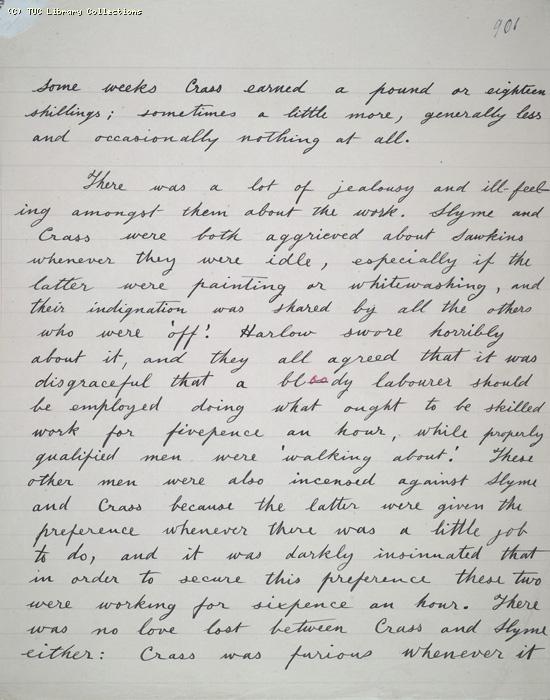 (C) TUC Library Collections
901
Some weeks Crass earned a pound or eighteen
shillings; sometimes a little more, generally less
and occasionally nothing at all.
There was a lot of jealousy and ill-feel-
ing amongst them about the work. Slyme and
Crass were both aggrieved about Sawkins
whenever they were idle, especially if the
latter were painting or whitewashing, and
their indignation was shared by all the others
who were 'off'! Harlow swore horribly
about it, and they all agreed that it was
disgraceful that a bloody labourer should
be employed doing what ought to be skilled
work for fivepence an hour, while properly
qualified men were 'walking about'! These
other men were also incensed against Slyme
and Crass because the latter were given the
preference whenever there was a little job
to do, and it was darkly insinuated that
in order to secure this preference these two
were working for sixpence an hour. There
was no love lost between Crass and Slyme
either: Crass was furious whenever it